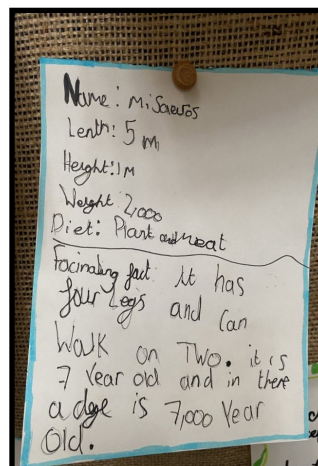 Name: miSaeuros
Lenth: 5 m
Height: 1M
Weight 2,000
Diet: Plant and meat
Facinating fact it has
four Legs and can
Walk on TWO. it is
7 Year old and in there
a doge is 7,000 Year
Old.